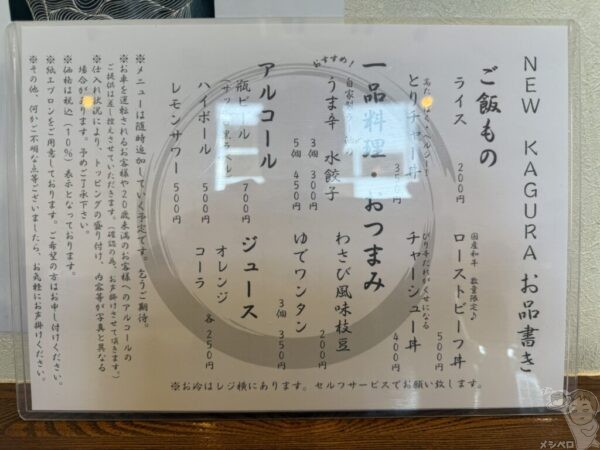 NEW KAGURA お品書き
ご飯もの
ライス 200円
国産和牛 数量限定♪
ローストビーフ丼 500円
とりチャー丼
ぴり辛だれがくせになる
チャーシュー丼 400円
一品料理・おつまみ
おすすめ!
うま辛 水餃子
3個 300円
5個 450円
わさび風味枝豆 200円
ゆでワンタン
3個 350円
アルコール
瓶ビール 700円
ハイボール 500円
レモンサワー 500円
ジュース
オレンジ
コーラ
各250円
※メニューは随時追加していく予定です。乞うご期待。
※お車を運転されるお客様や20歳未満のお客様へのアルコールの
ご提供は差し控えさせていただきます。(確認の為、お声掛けさせて頂きます)
※仕入れ状況により、トッピングの盛り付け、内容等が写真と異なる
場合があります。予めご了承下さい。
※価格は税込(10%)表示となっております。
※紙エプロンをご用意しております。ご希望の方はお申し付けください。
※その他、何かご不明な点等ございましたら、お気軽にお声掛けください。
※お冷はレジ横にあります。セルフサービスでお願い致します。
メシペロ